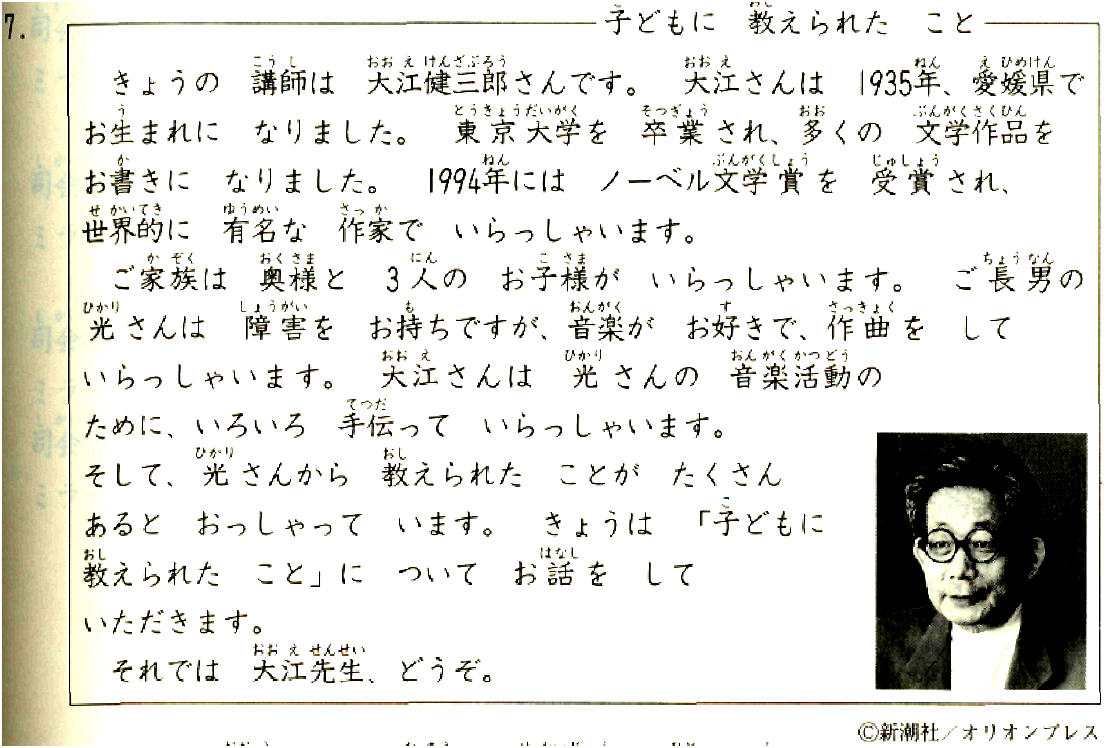 7.
子どもに 教えられた こと
きょうの 講師は 大江健三郎さんです。 大江さんは 1935年、愛媛県で
お生まれに なりました。 東京大学を 卒業され、多くの 文学作品を
お書きに なりました。 1994年には ノーベル文学賞を 受賞され、
世界的に 有名な 作家で いらっしゃいます。
ご家族は 奥様と 3人の お子様が いらっしゃいます。 ご長男の
光さんは 障害を お持ちですが、音楽が お好きで、作曲を して
いらっしゃいます。 大江さんは 光さんの 音楽活動の
ために、いろいろ 手伝って いらっしゃいます。
そして、光さんから 教えられた ことが たくさん
あると おっしゃって います。 きょうは 「子どもに
教えられた こと」に ついて お話を して
いただきます。
それでは 大江先生、どうぞ。
©新潮社/オリオンプレス